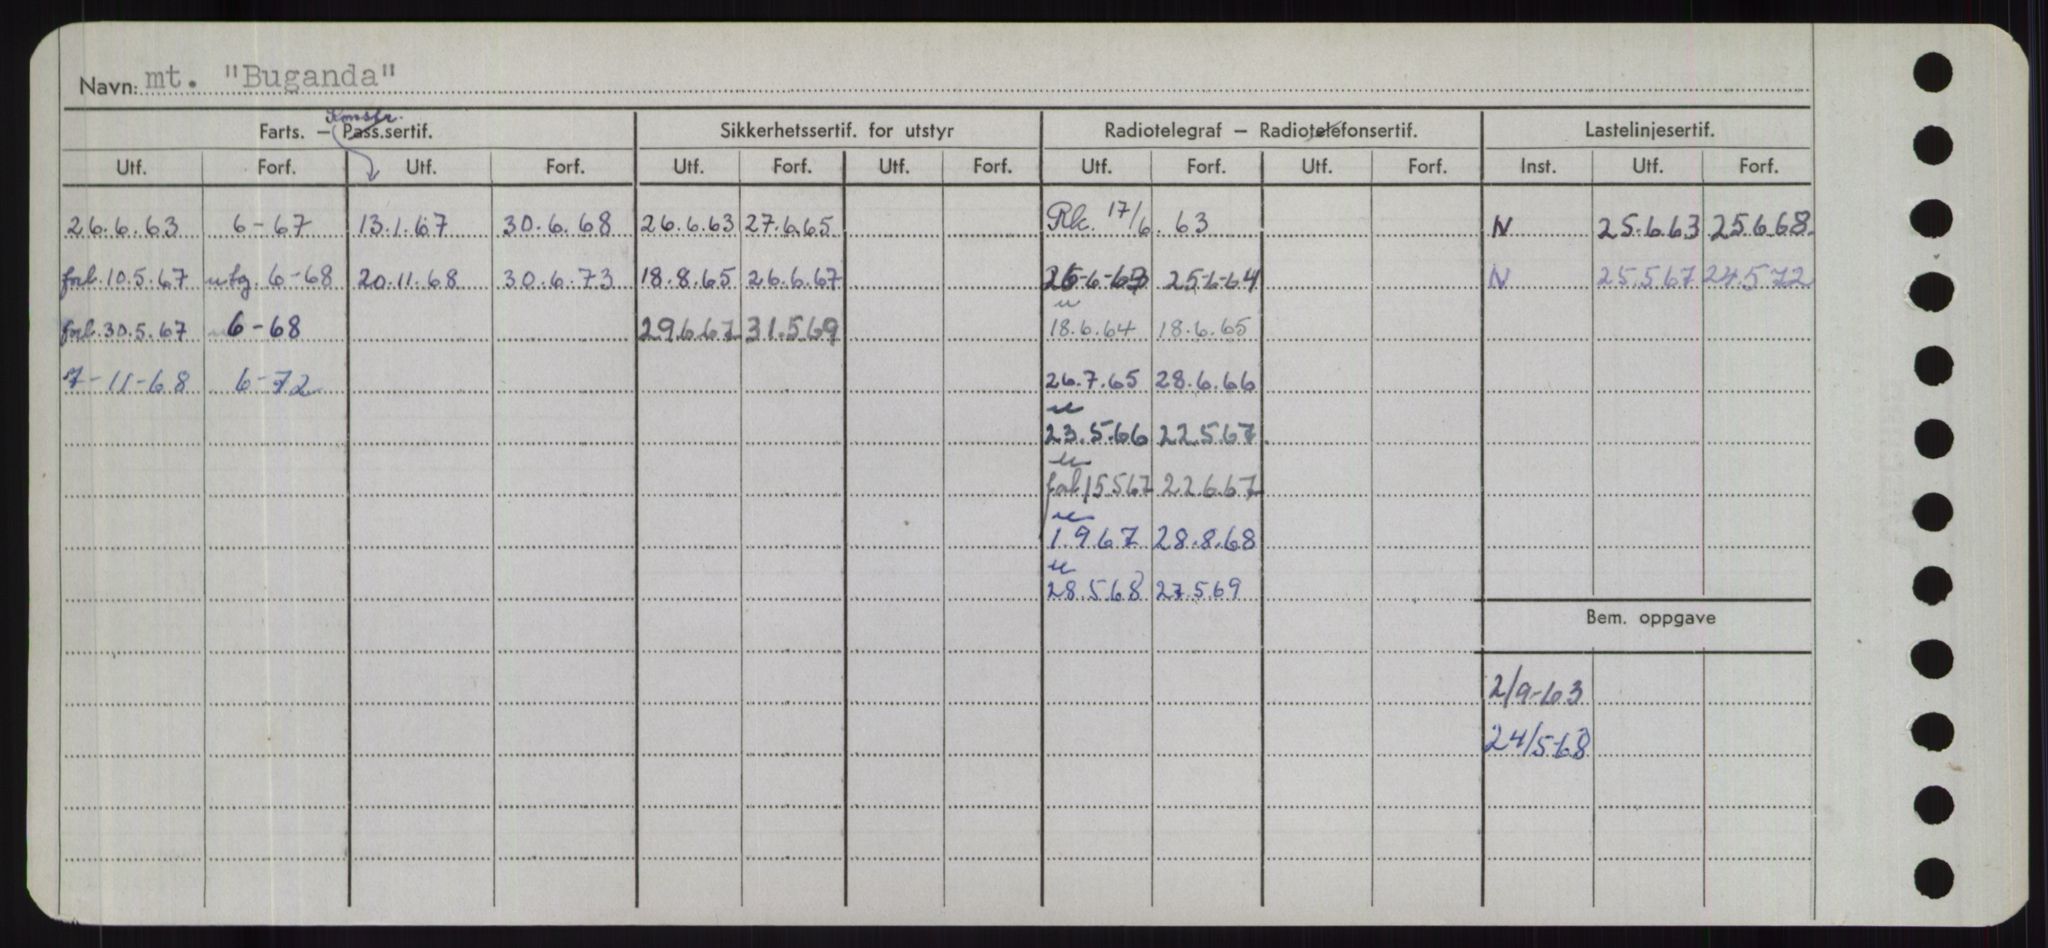 Navn: mt. "Buganda"
Konstr.
Farts. — Pass.sertif. Sikkerhetssertif. for utstyr Radiotelegraf — Radiotelefonsertif. Lastelinjesertif.
Utf. Forf. Utf. Forf. Utf. Forf. Utf. Forf. Utf. Forf. Utf. Forf. Inst. Utf. Forf.
26.6.63 6-67 13.1.67 30.6.68 26.6.63 27.6.65 Rk. 17/6. 63 N 25.6.63 25.6.68.
forl. 10.5.67 utg. 6-68 20.11.68 30.6.73 18.8.65 26.6.67 26-6-63 25-6-64 N 25.5.67 24.5.72
u
forl. 30.5.67 6-68 29.6.67 31.5.69 18.6.64 18.6.65
7-11-68 6-72 26.7.65 28.6.66
u
23.5.66 22.5.67
u
forl 15.5.67 22.6.67
u
1.9.67 28.8.68
u
28.5.68 27.5.69
Bem. oppgave
2/9-63
24/5-68